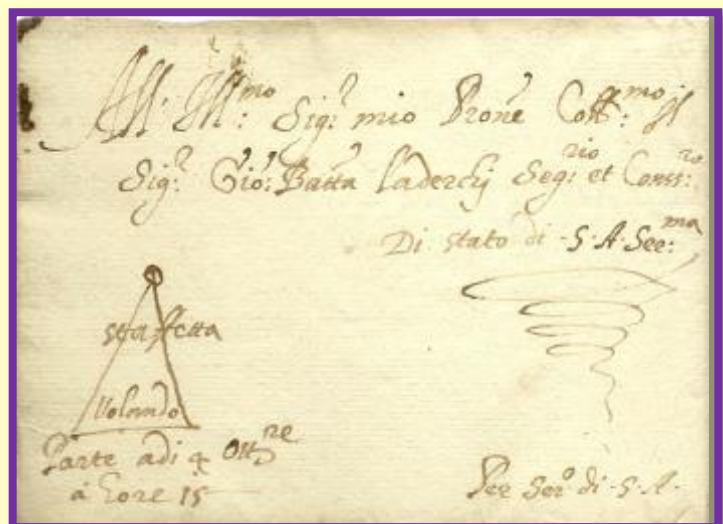 All' Ill:mo Sig:r mio Prone Coll:mo il
Sig:r Gio: Batta Laderchj Seg:rio et Cons:ro
Di stato di S. A. See:ma
staffetta
Volando
Parte adi 4 Ott.re
à hore 15
Per Ser.o di S. A.